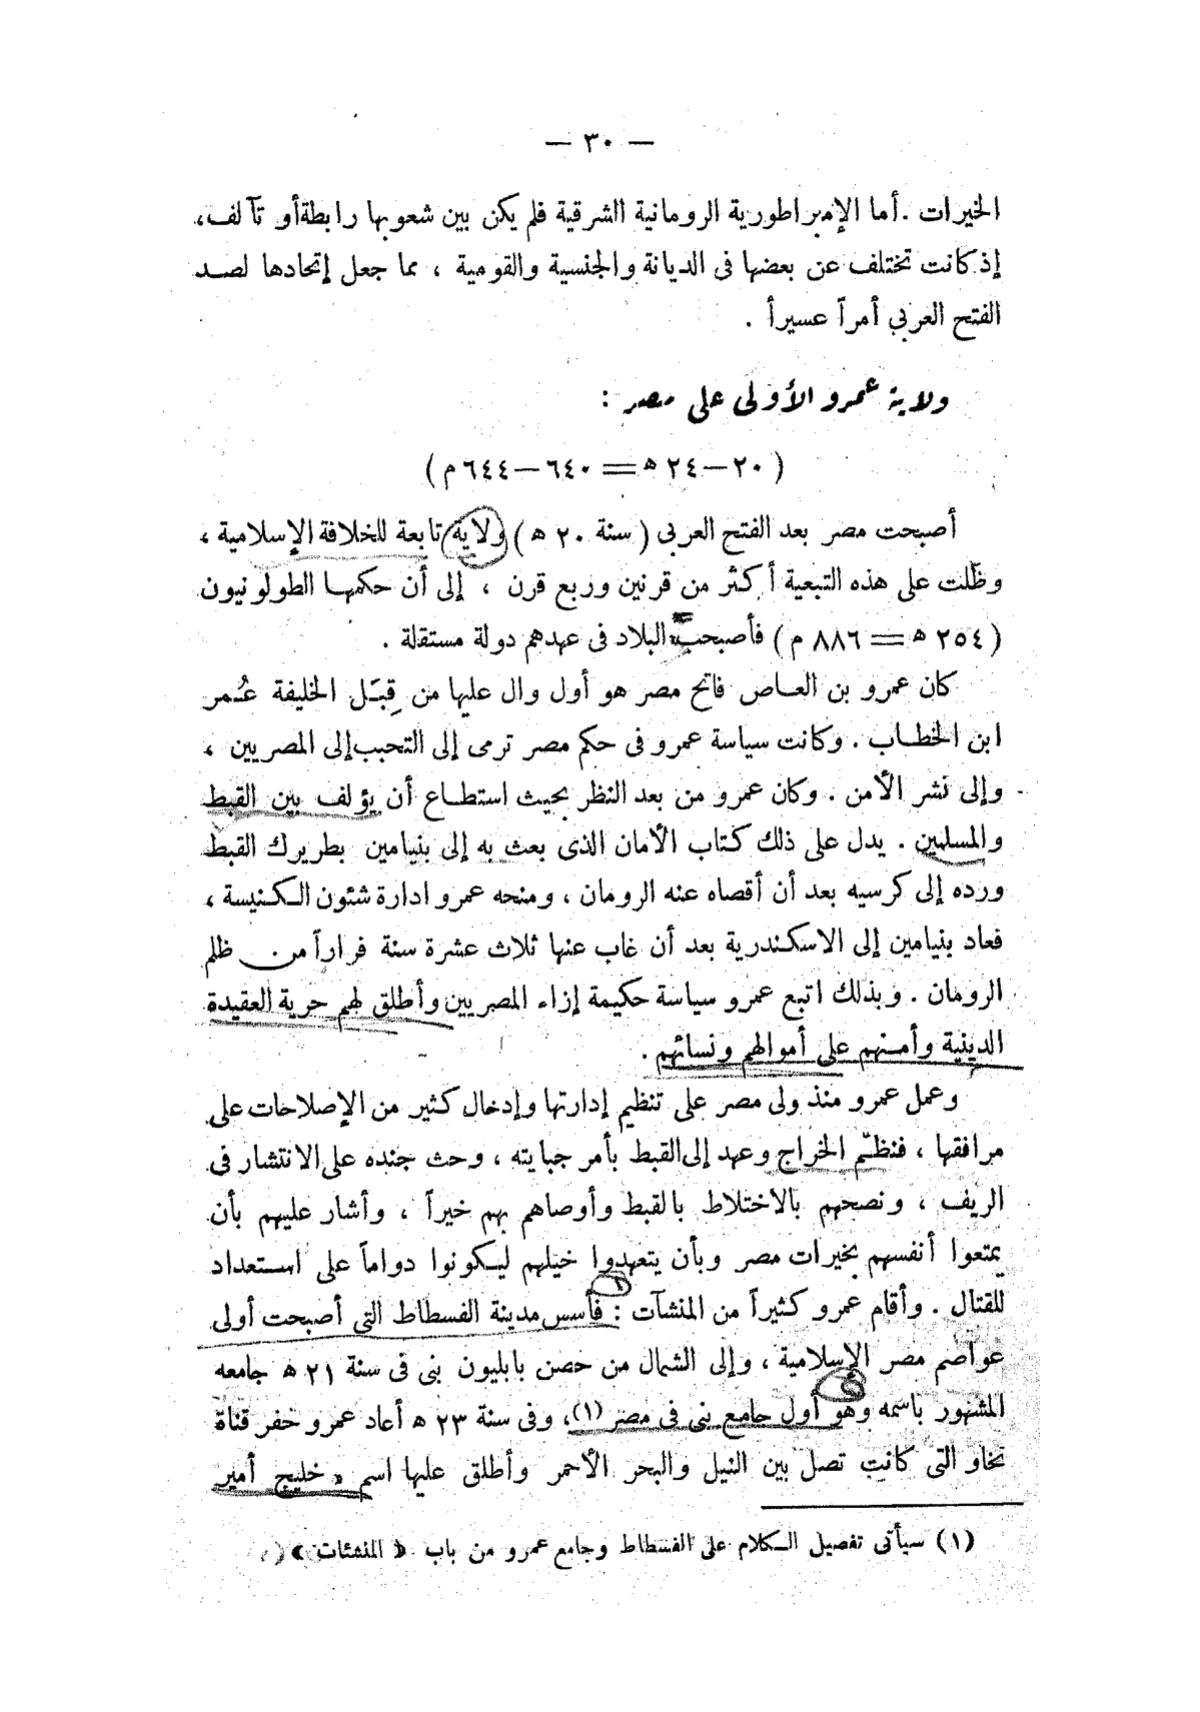 — ٣٠ —
الخيرات . أما الإمبراطورية الرومانية الشرقية فلم يكن بين شعوبها رابطة أو تآلف،
إذ كانت تختلف عن بعضها فى الديانة والجنسية والقومية ، مما جعل إتحادها لصد
الفتح العربي أمراً عسيراً .
ولاية عمرو الأولى على مصر :
( ٢٠ — ٢٤ ھ = ٦٤٠ — ٦٤٤ م )
أصبحت مصر بعد الفتح العربى ( سنة ٢٠ ھ ) ولاية تابعة للخلافة الإسلامية ،
وظلت على هذه التبعية أكثر من قرنين وربع قرن ، إلى أن حكمها الطولونيون
( ٢٥٤ ھ = ٨٨٦ م ) فأصبحت البلاد فى عهدهم دولة مستقلة .
كان عمرو بن العاص فاتح مصر هو أول وال عليها من قِبَل الخليفة عُمر
ابن الخطاب . وكانت سياسة عمرو فى حكم مصر ترمى إلى التحبب إلى المصريين ،
وإلى نشر الأمن . وكان عمرو من بعد النظر بحيث استطاع أن يؤلف بين القبط
والمسلمين . يدل على ذلك كتاب الأمان الذى بعث به إلى بنيامين بطريرك القبط
ورده إلى كرسيه بعد أن أقصاه عنه الرومان ، ومنحه عمرو ادارة شئون الكنيسة ،
فعاد بنيامين إلى الاسكندرية بعد أن غاب عنها ثلاث عشرة سنة فراراً من ظلم
الرومان . وبذلك اتبع عمرو سياسة حكيمة إزاء المصريين وأطلق لهم حرية العقيدة
الدينية وأمنهم على أموالهم ونسائهم .
وعمل عمرو منذ ولى مصر على تنظيم إدارتها وإدخال كثير من الإصلاحات على
مرافقها ، فنظّم الخراج وعهد إلى القبط بأمر جبايته ، وحث جنده على الانتشار فى
الريف ، ونصحهم بالاختلاط بالقبط وأوصاهم بهم خيراً ، وأشار عليهم بأن
يمتعوا أنفسهم بخيرات مصر وبأن يتعهدوا خيلهم ليكونوا دواماً على استعداد
للقتال . وأقام عمرو كثيراً من المنشآت : فأسس مدينة الفسطاط التى أصبحت أولى
عواصم مصر الإسلامية ، وإلى الشمال من حصن بابليون بنى فى سنة ٢١ ھ جامعه
المشهور باسمه وهو أول جامع بنى فى مصر (١)، وفى سنة ٢٣ ھ أعاد عمرو حفر قناة
نخاو التى كانت تصل بين النيل والبحر الأحمر وأطلق عليها اسم « خليج أمير
(١) سيأتى تفصيل الكلام على الفسطاط وجامع عمرو من باب « المنشئات »